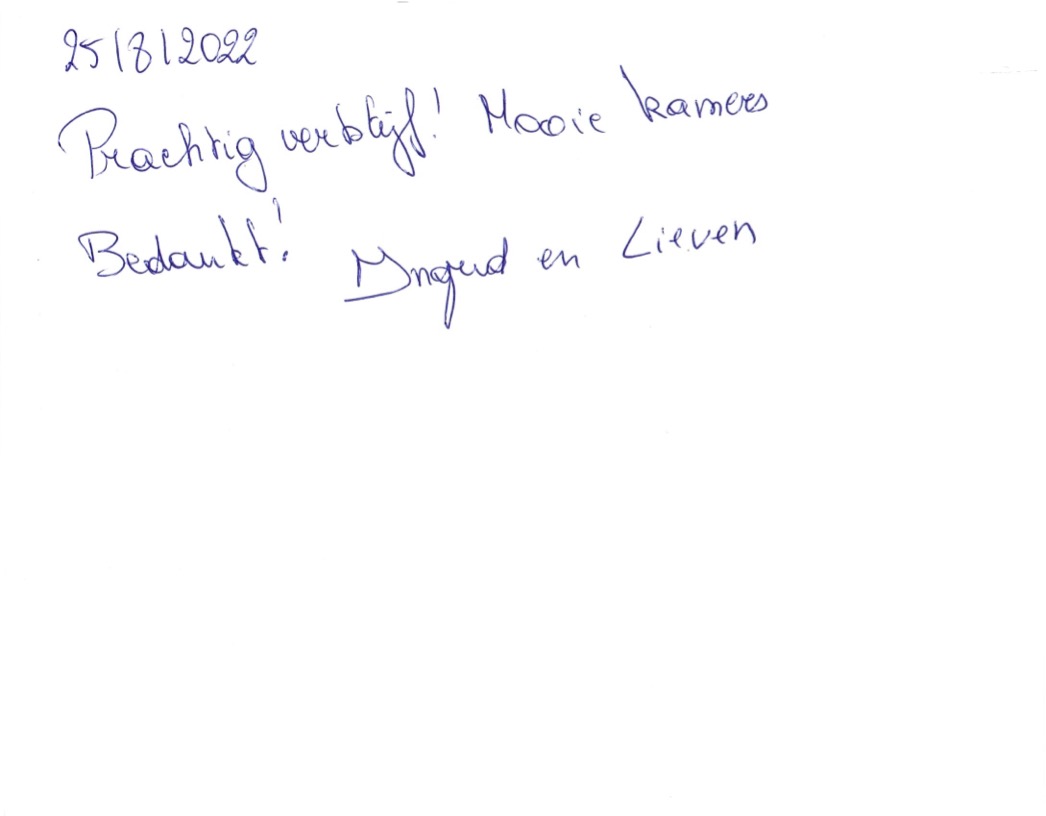 25/8/2022
Prachtig verblijf! Mooie kamers
Bedankt! Ingrid en Lieven